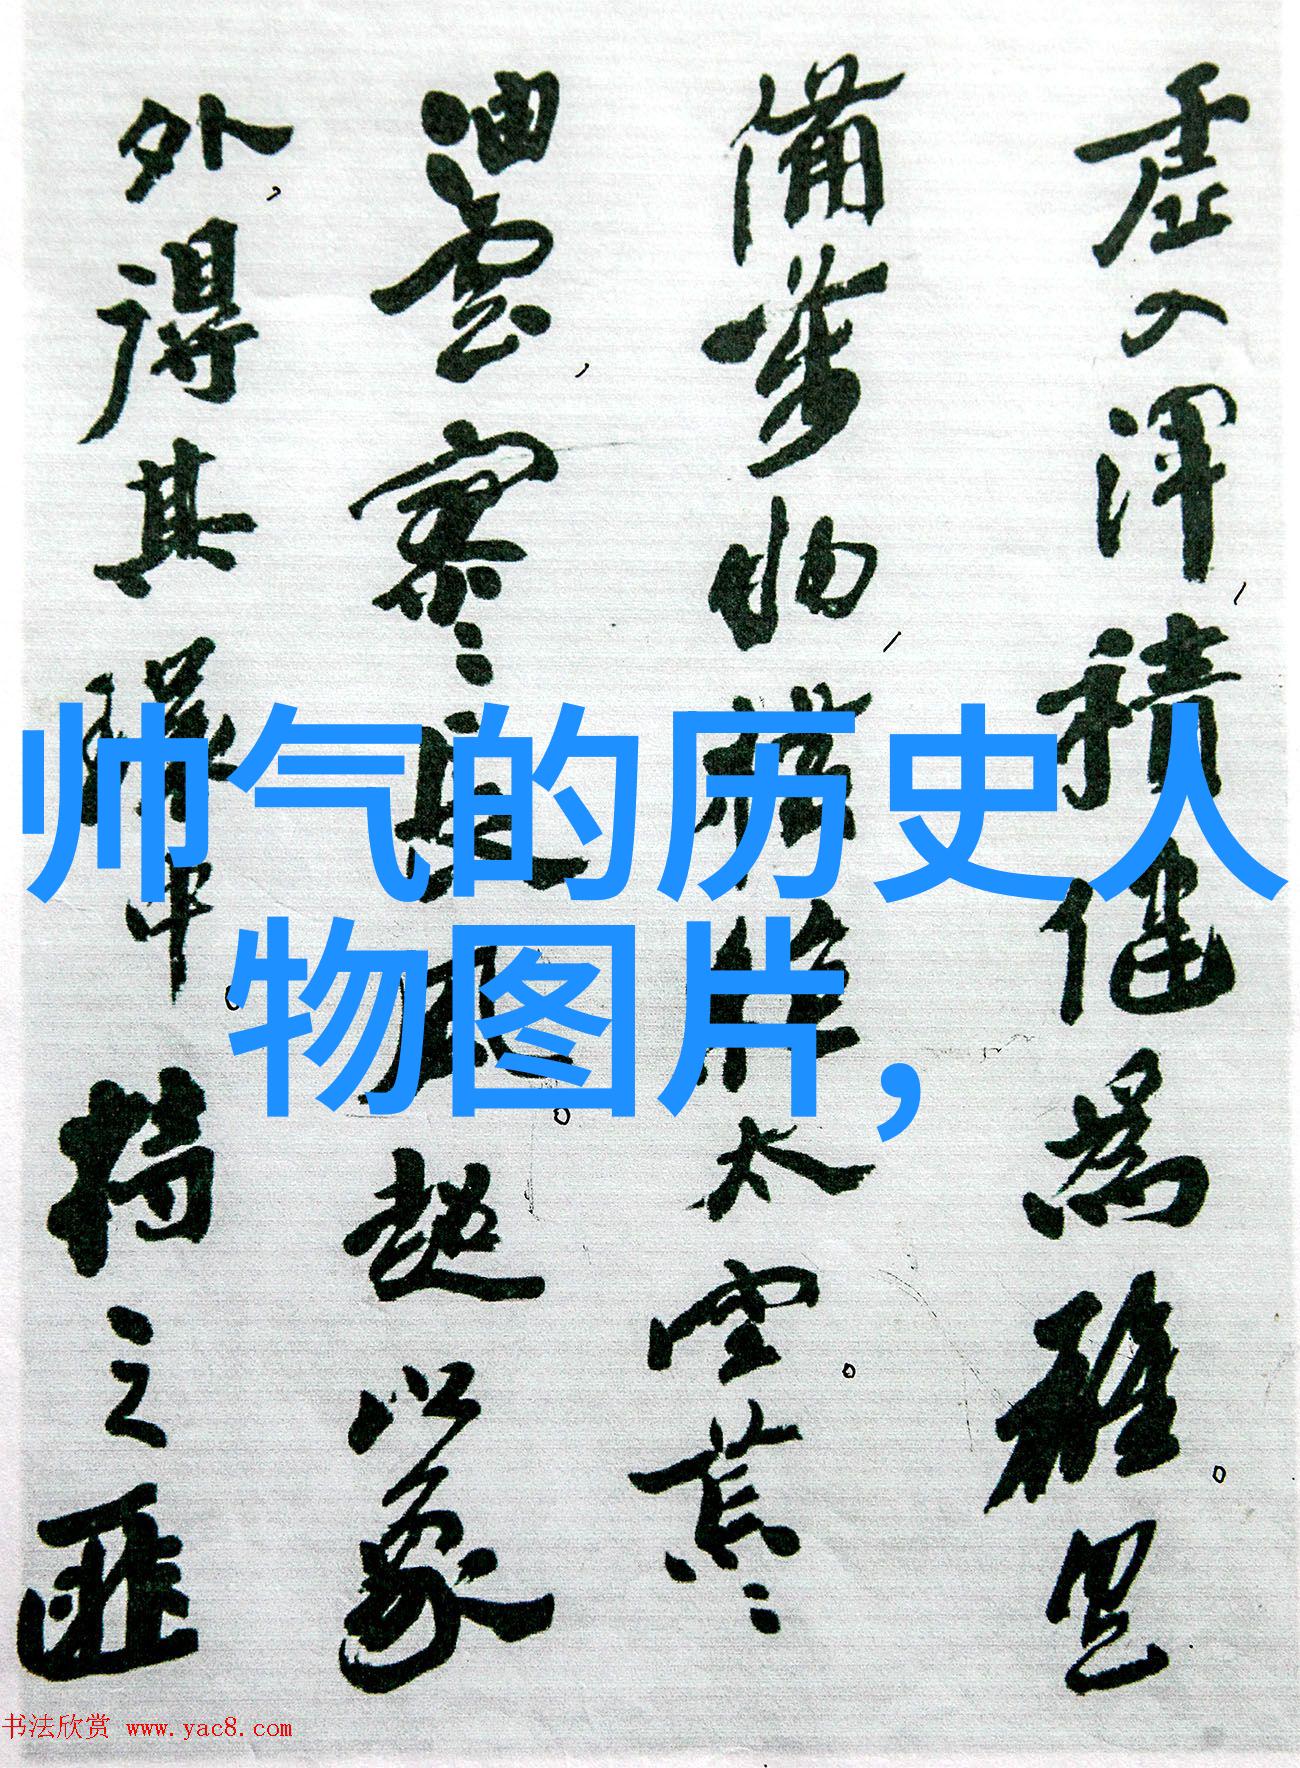 虛入渾，積健為雄。具
備萬物，橫絕太空。荒〻
油雲，寥〻長風。超以象
外，得其環中。持之匪
帅气的历史人
物图片，
书法欣赏 www.yac8.com